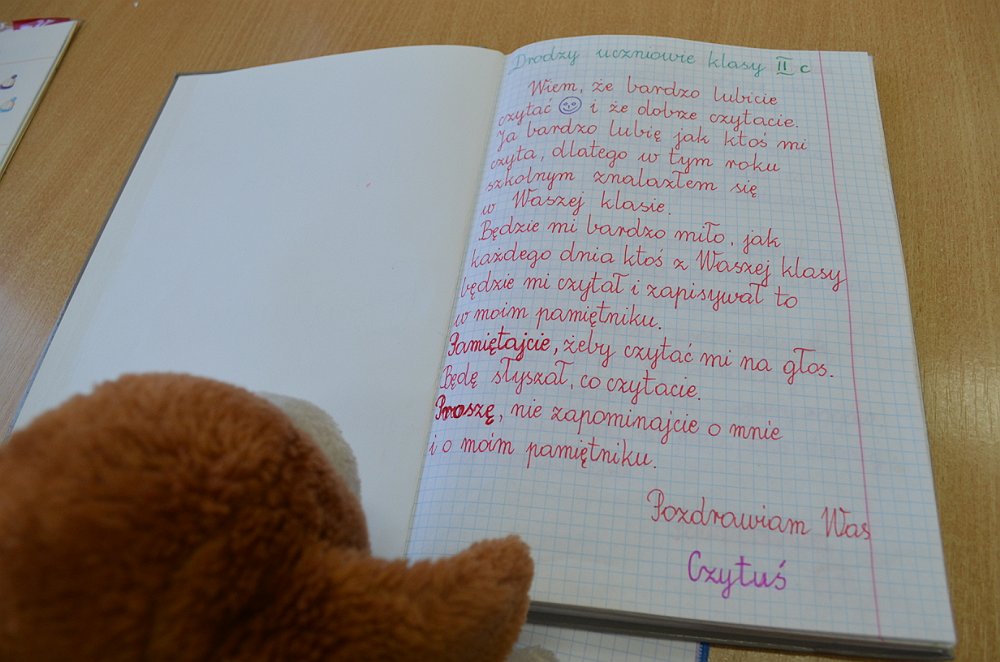 Drodzy uczniowie klasy II c
Wiem, że bardzo lubicie
czytać i że dobrze czytacie.
Ja bardzo lubię jak ktoś mi
czyta, dlatego w tym roku
szkolnym znalazłem się
w Waszej klasie.
Będzie mi bardzo miło, jak
każdego dnia ktoś z Waszej klasy
będzie mi czytał i zapisywał to
w moim pamiętniku.
Pamiętajcie, żeby czytać mi na głos.
Będę słyszał, co czytacie.
Proszę, nie zapominajcie o mnie
i o moim pamiętniku.
Pozdrawiam Was
Czytuś